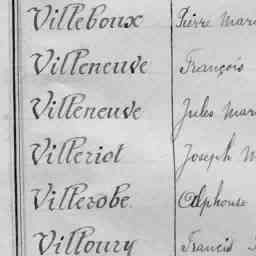 Villeboux Pierre Mari
Villeneuve François
Villeneuve Jules Mar
Villeriot Joseph M
Villerobe Alphonse
Villoury Francis